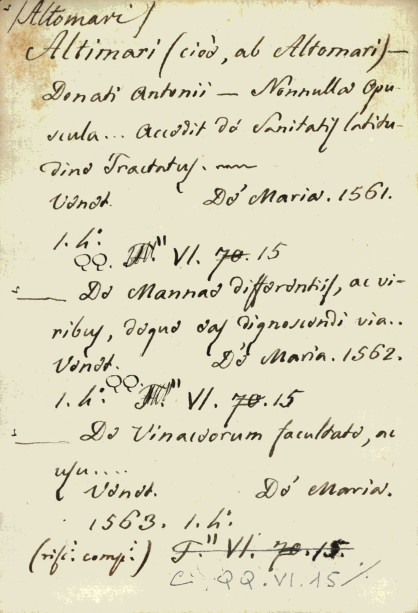 (Altomari)
Altimari (cioè, ab Altomari) —
Donati Antonii — Nonnulla Opu-
scula... Accedit de Sanitatis latitu-
dine Tractatus.
Venet. De' Maria. 1561.
1. h:
QQ. VI. 70. 15
— De Mannae differentiis, ac vi-
ribus, deque eas dignoscendi via..
Venet. De' Maria. 1562.
QQ.
1. h: VI. 70. 15
— De Vinaceorum facultate, ac
usu....
Venet. De' Maria.
1563. 1. h:
(risc: comp:) F." VI. 70. 15.
C. QQ. VI. 15